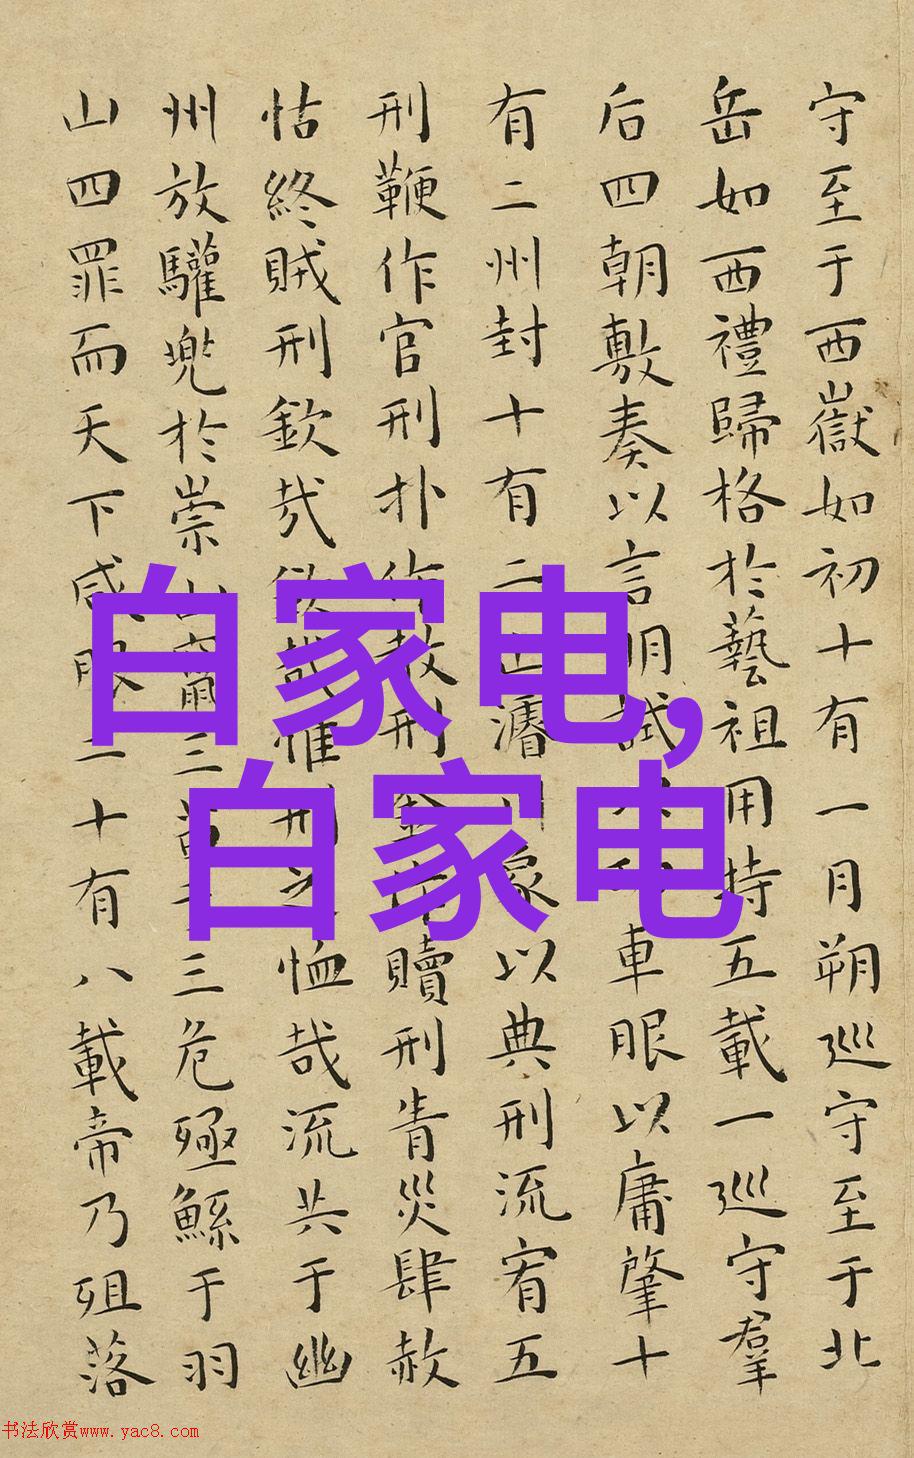 守至于西嶽如初十有一月朔巡守至于北
岳如西禮歸格於藝祖用持五載一巡守羣
后四朝敷奏以言明試車眼以庸肇十
有二州封十有二山濬川象以典刑流宥五
刑鞭作官刑扑作教刑金作贖刑眚災肆赦
怙終賊刑欽哉欽哉惟刑之恤哉流共于幽
州放驩兜於崇山竄三苗于三危殛鯀于羽
山四罪而天下咸服二十有八載帝乃殂落
白家电,
白家电
书法欣赏www.yac8.com